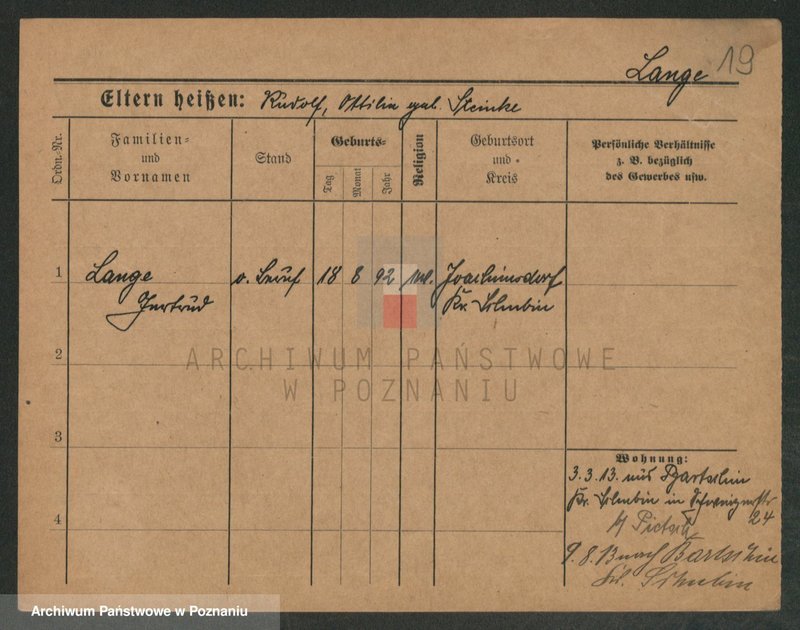 Lange 19
Eltern heißen: Rudolf, Ottilie geb. Steinke
Ordn.-Nr.
Familien-
und
Vornamen
Stand
Geburts-
Tag
Monat
Jahr
Religion
Geburtsort
und
Kreis
Persönliche Verhältnisse
z. B. bezüglich
des Gewerbes usw.
1 Lange o. Beruf 18 8 92 Joachimsdorf
Gertrud Kr. Schubin
2
ARCHIWUM PAŃSTWOWE
W POZNANIU
3
Wohnung:
3.3.13. aus Bartschin
Kr. Schubin in
24
b/
9.8.13 nach Bartschin
Schubin
4
Archiwum Państwowe w Poznaniu